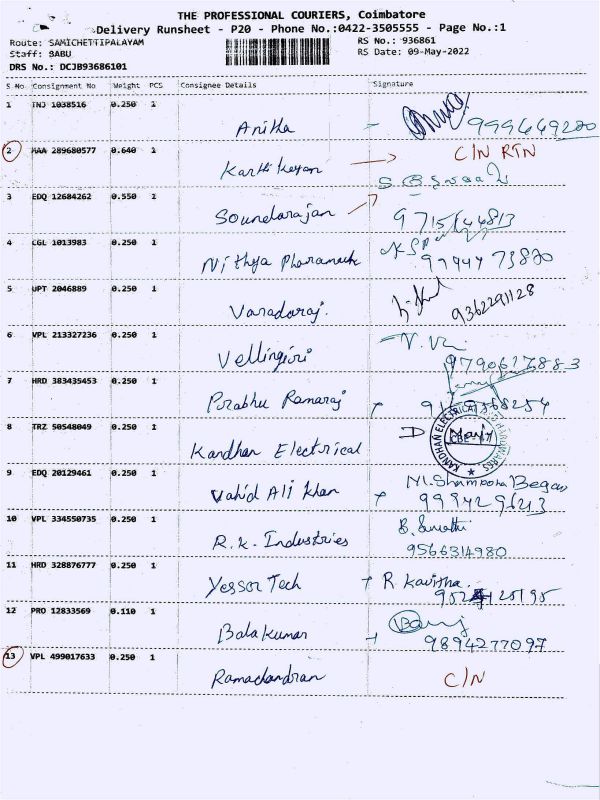 THE PROFESSIONAL COURIERS, Coimbatore
Delivery Runsheet - P20 - Phone No.:0422-3505555 - Page No.:1
Route: SAMICHETTIPALAYAM RS No.: 936861
Staff: BABU RS Date: 09-May-2022
DRS No.: DCJB93686101
S No Consignment No Weight PCS Consignee Details Signature
1 TNJ 1038516 0.250 1 Anitha
2 MAA 289680577 0.640 1 Karthikeyan C/N RTN
3 EDQ 12684262 0.550 1 Soundarajan
4 CGL 1013983 0.250 1 Nithya
5 UPT 2046889 0.250 1 Varadaraj. 9362291128
6 VPL 213327236 0.250 1 Vellingiri
7 HRD 383435453 0.250 1 Prabhu Ramaraj
8 TRZ 50548049 0.250 1 Kandhan Electrical
KANDHAN ELECTRICAL
9 EDQ 20129461 0.250 1 Vahid Ali Khan
10 VPL 334550735 0.250 1 R.K. Industries
9566314980
11 HRD 328876777 0.250 1 Yessor Tech R. Kavitha.
12 PRO 12833569 0.110 1 Balakumar
9894277097
13 VPL 499017633 0.250 1 Ramachandran C/N